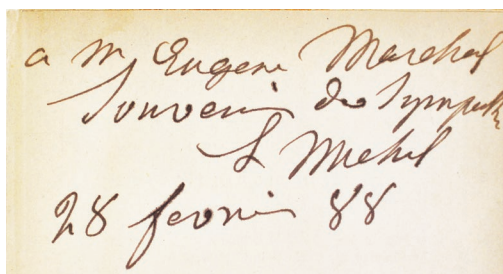 a m Eugene Marchal
Souvenir de Sympathie
L Michel
28 fevrier 88